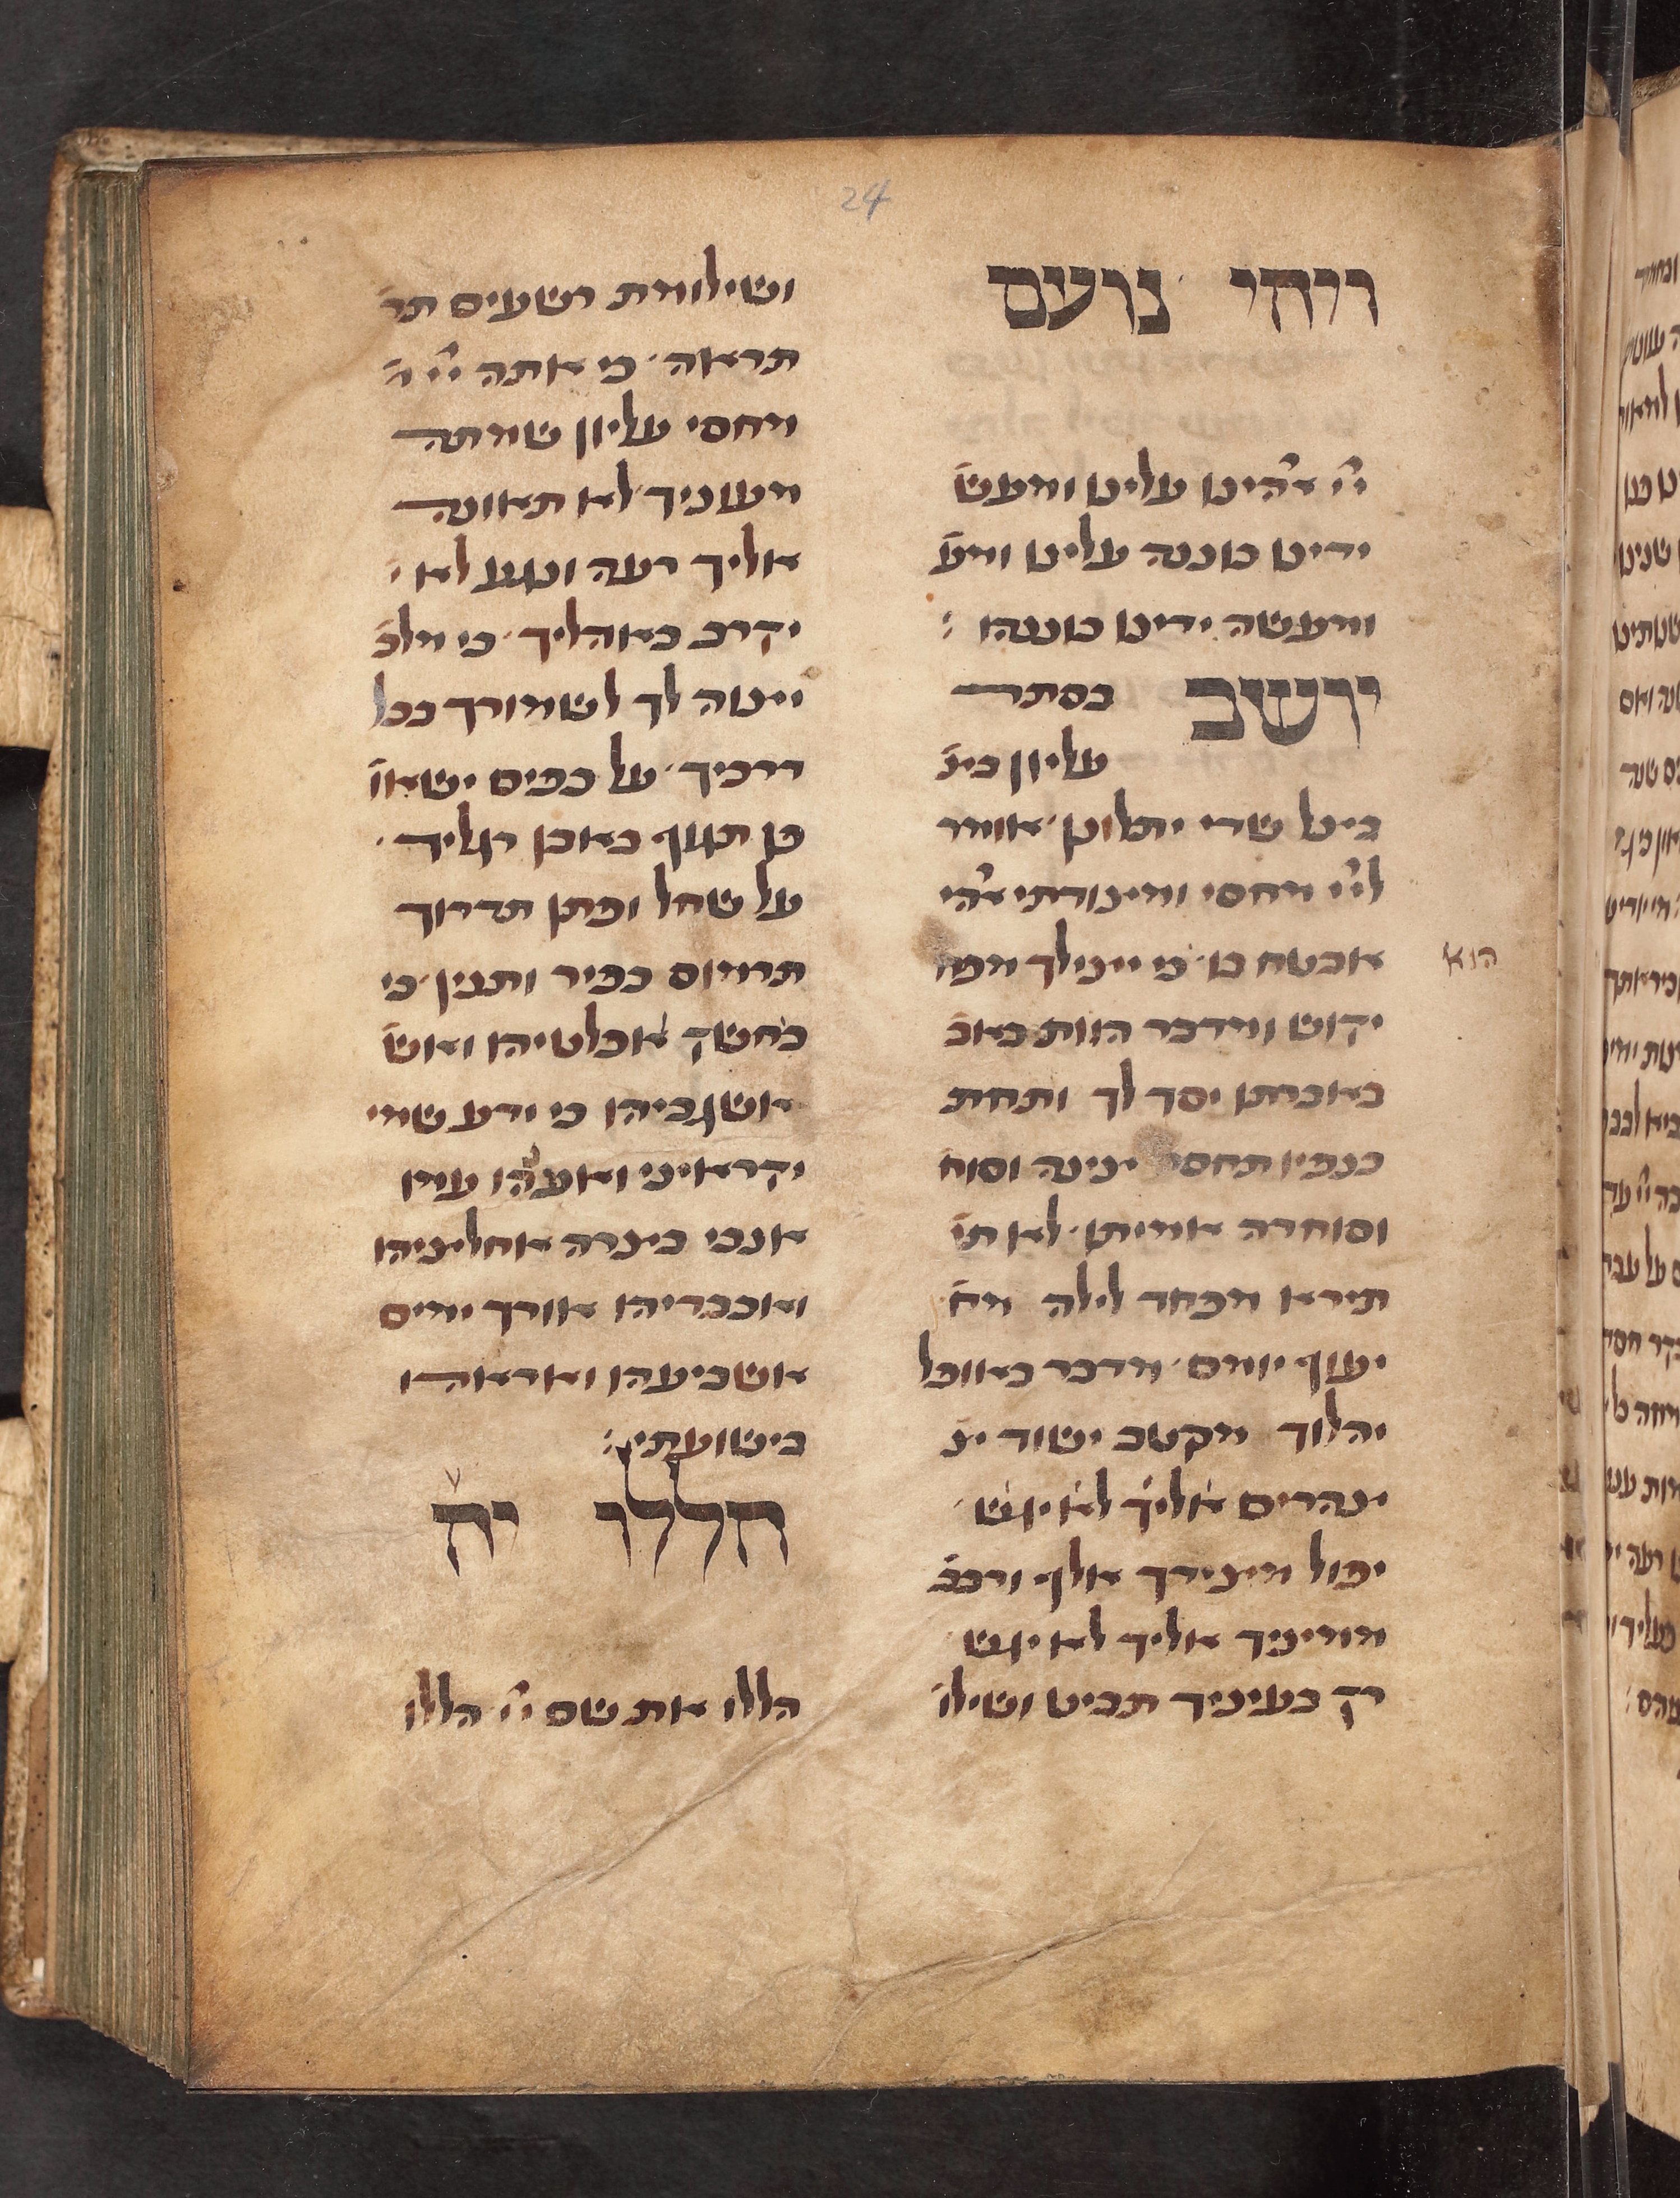 24
ויהי נועם
יי אלהינו עלינו ומעש
ידינו כוננה עלינו ומע
ומעשה ידינו כוננהו :
יושב בסתר
עליון בצ
בצל שדי יתלונן אומר
ליי מחסי ומצודתי אלהי
אבטח בו כי יצילך מפח
הוא
יקוש ומדבר הוות באב
באברתו יסך לך ותחת
כנפיו תחסה צינה וסוח
וסוחרה אמיתו לא תי
תירא מפחד לילה מח
יעוף יומם מדבר באופל
יהלוך מקטב ישוד יצ
צהרים אליך לא יגש
יפול מיצידך אלף ורבב
מימיניך אליך לא יגש
רק בעיניך תביט ושילו
ושילומת רשעים תר
תראה כי אתה יי
מחסי עליון שמתה
מעוניך לא תאונה
אליך רעה ונגע לא י
יקרב באהליך כי מלכ
יצוה לך לשמורך בכל
דרכיך על כפים ישאו
פן תגוף באבן רגליך
על שחל ופתן תדרוך
תרמוס כפיר ותנין כי
בי חשק אפלטיהו ואש
אשגביהו כי ידע שמי
יקראיני ואענהו עימו
אנכי בצרה אחליציהו
ואכבדיהו אורך ימים
אשביעהו ואראהו
בישועתי :
הללו יה
הללו את שם יי הללו